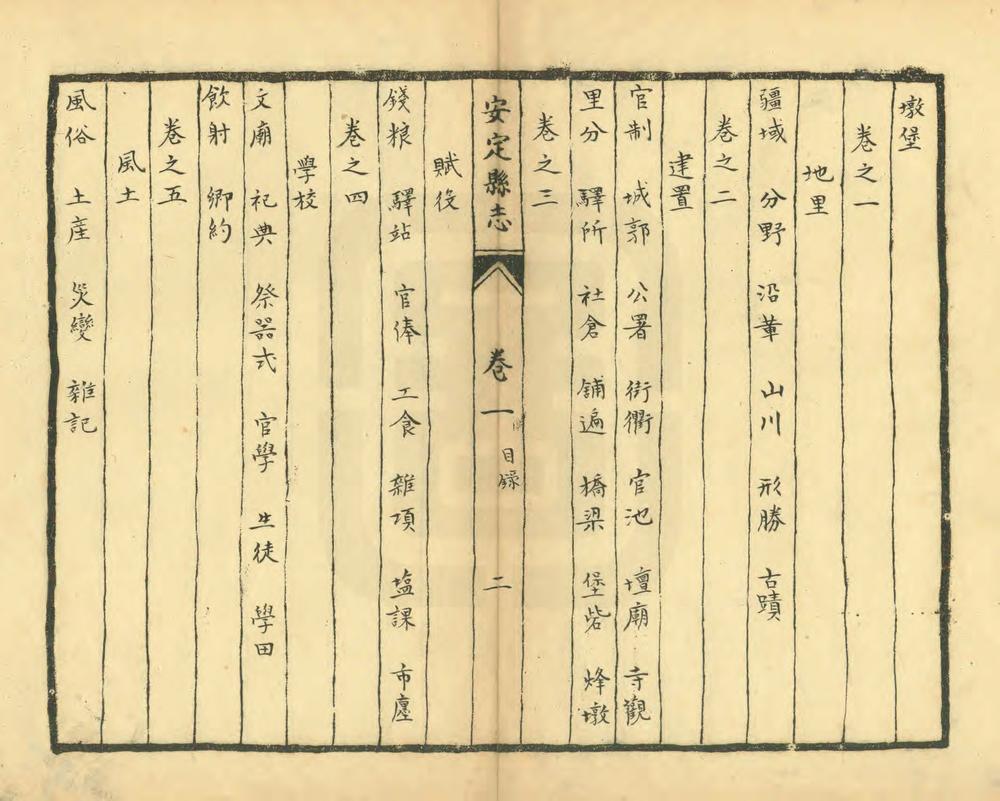 墩堡
卷之一
地里
疆域 分野 沿革 山川 形勝 古蹟
卷之二
建置
官制 城郭 公署 街衢 官池 壇廟 寺觀
里分 驛所 社倉 鋪遞 橋梁 堡砦 烽墩
卷之三
安定縣志 卷一 目録 二
賦役
錢粮 驛站 官俸 工食 雜項 塩課 市廛
卷之四
學校
文廟 祀典 祭器式 官學 生徒 學田
飲射 鄉約
卷之五
風土
風俗 土産 災變 雜記